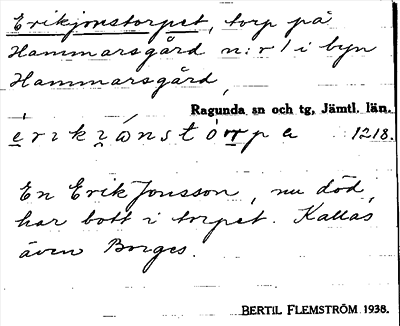 Erikjonstorpet, torp på
Hammarsgård n:r 1 i byn
Hammarsgård,
Ragunda sn och tg, Jämtl. län.
1218.
En Erik Jonsson, nu död,
har bott i torpet. Kallas
även Borges.
BERTIL FLEMSTRÖM 1938.